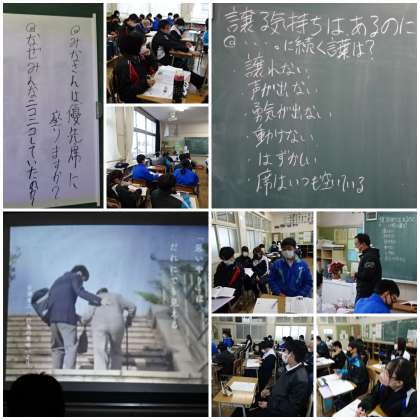 @みなさんは優先席に
座りますか?
@なぜみんなニコニコしていたのか?
譲る気持ちはあるのに
@・・・。に続く言葉は?
・譲れない
・声が出ない
・勇気が出ない
・動けない
・はずかしい
・席はいつも空いている
思いやりは
だれにでも見える